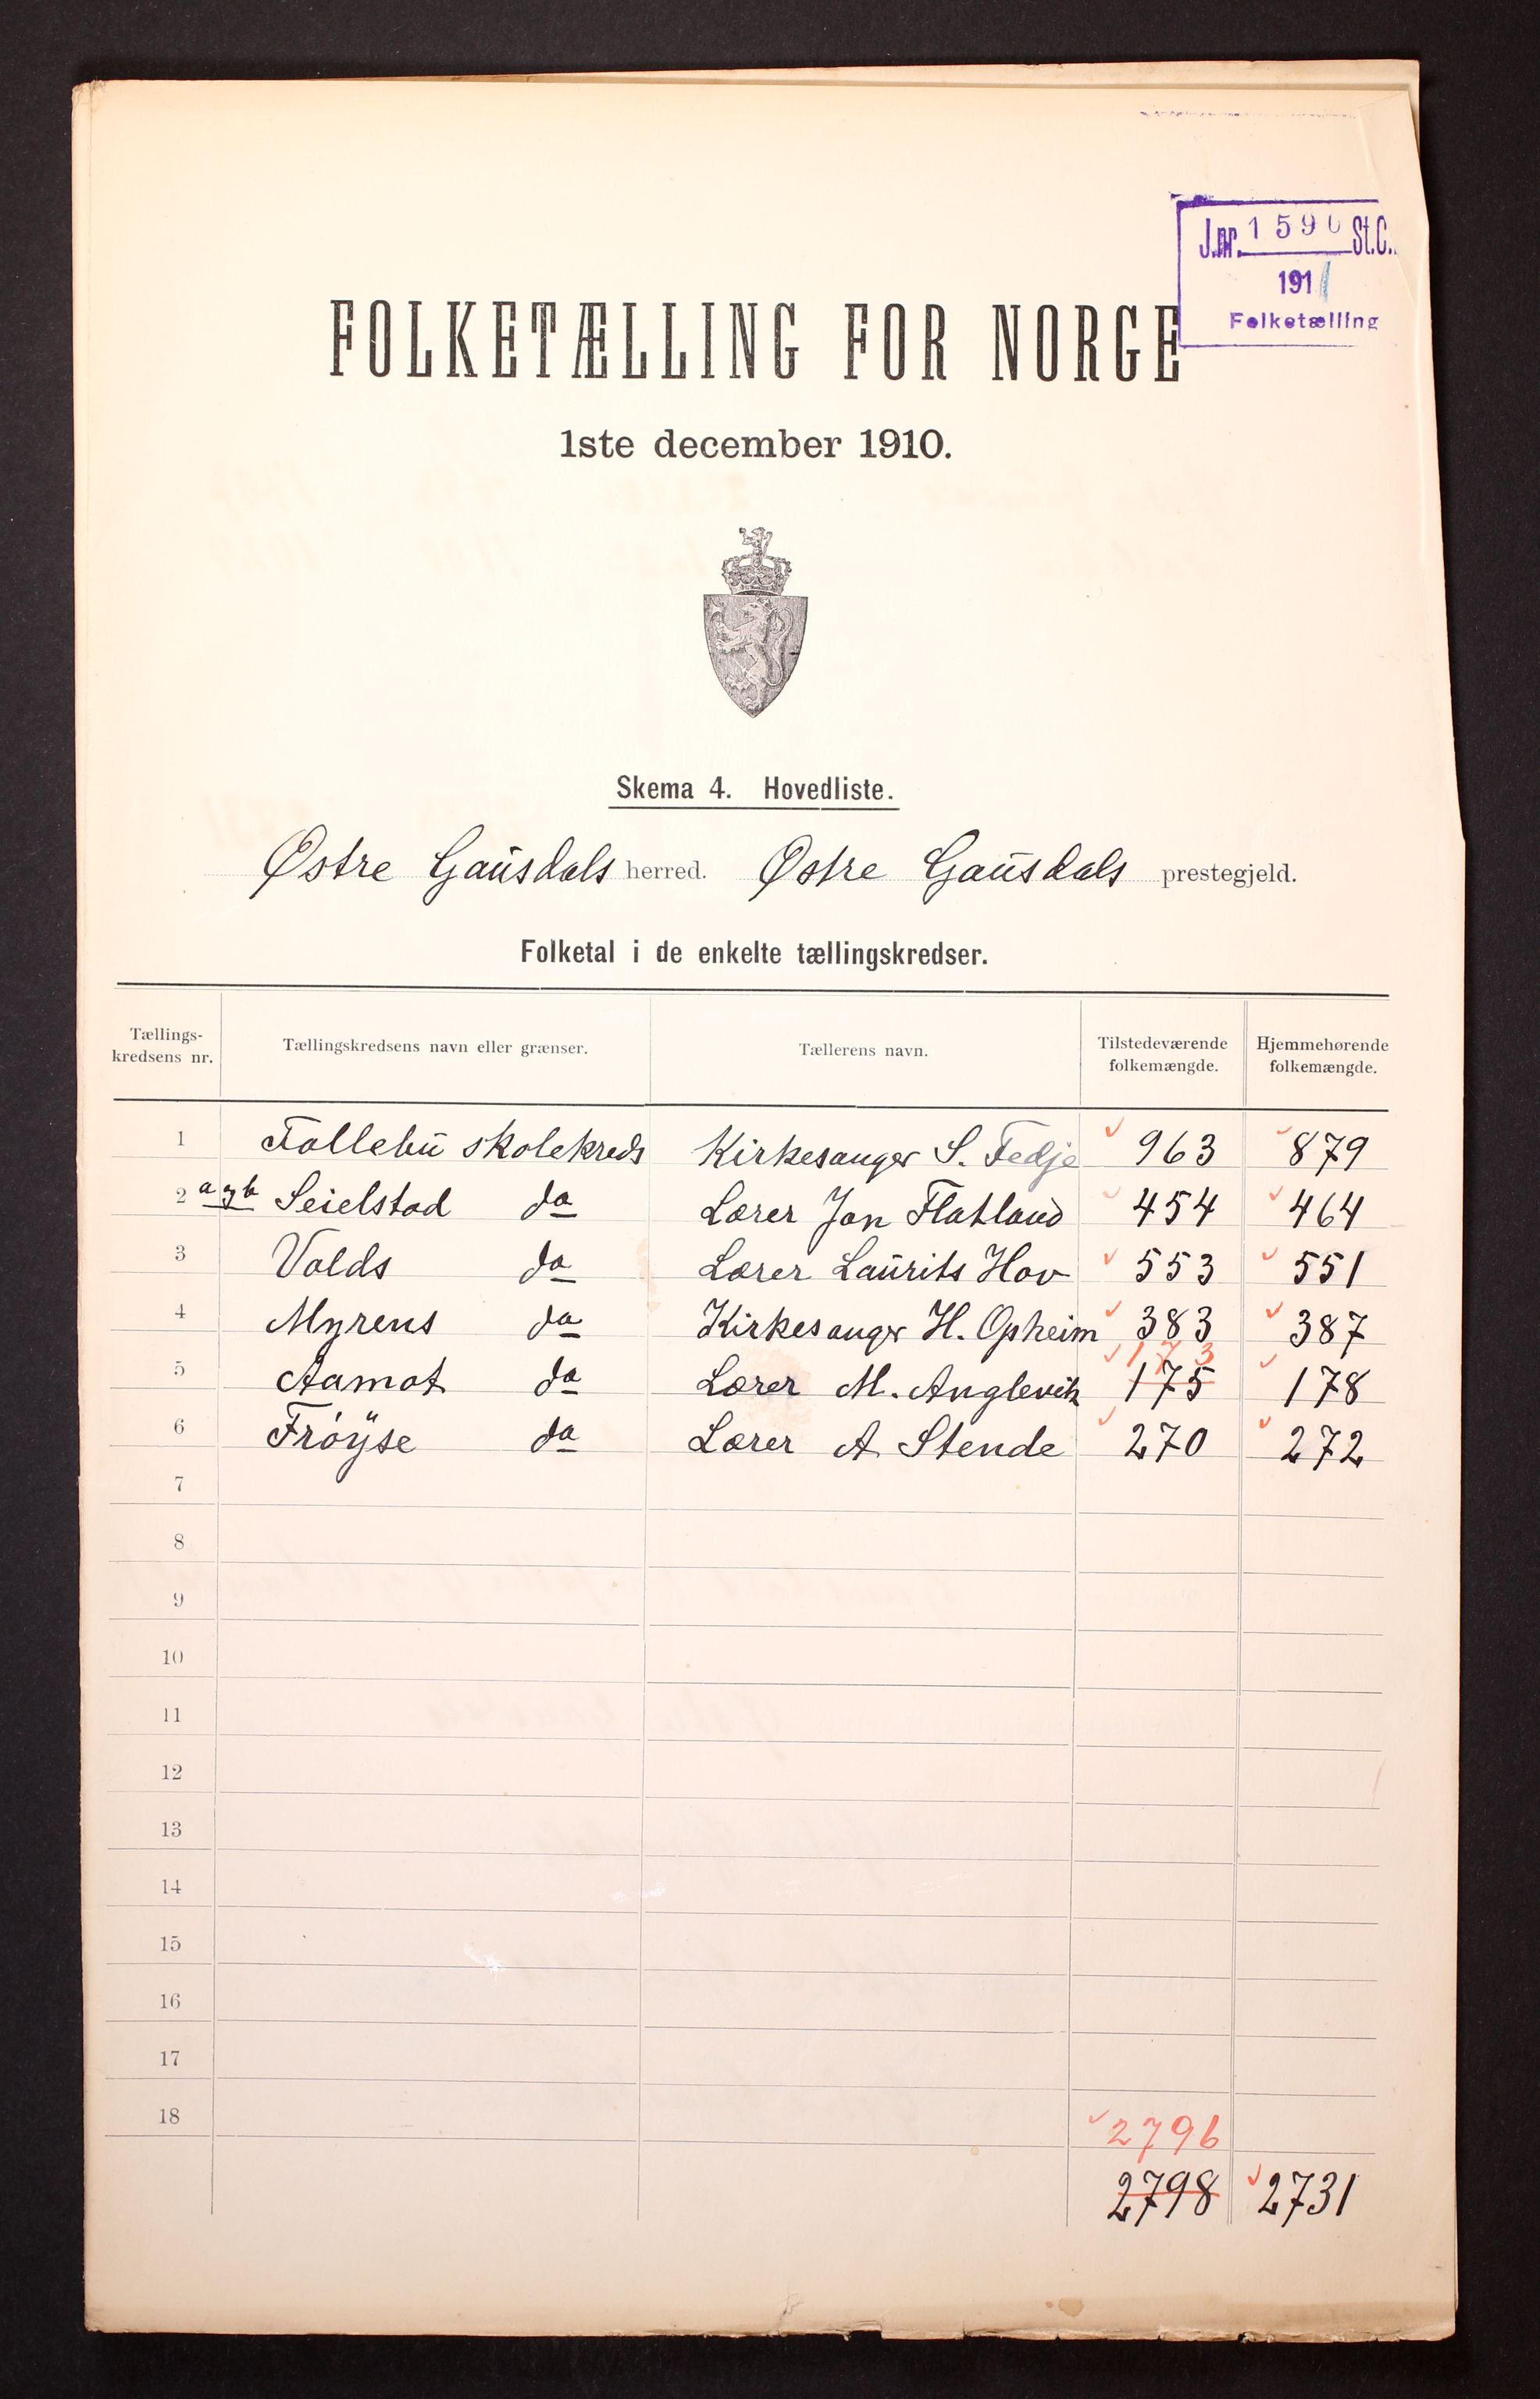 J.nr. 1590 St.C.
1911
Folketælling
FOLKETÆLLING FOR NORGE
1ste december 1910.
Skema 4. Hovedliste.
Østre Gausdals herred. Østre Gausdals prestegjeld.
Folketal i de enkelte tællingskredser.
Tællings-kredsens nr. Tællingskredsens navn eller grænser. Tællerens navn. Tilstedeværende folkemængde. Hjemmehørende folkemængde.
1 Follebu skolekreds Kirkesanger S. Fedje 963 879
2 a og b Seielstad do Lærer Jon Flatland 454 464
3 Volds do Lærer Laurits Hov 553 551
4 Myrens do Kirkesanger H. Opheim 383 387
173
5 Aamot do Lærer M. Anglevik 175 178
6 Frøyse do Lærer A Stende 270 272
7
8
9
10
11
12
13
14
15
16
17
18 2796
2798 2731